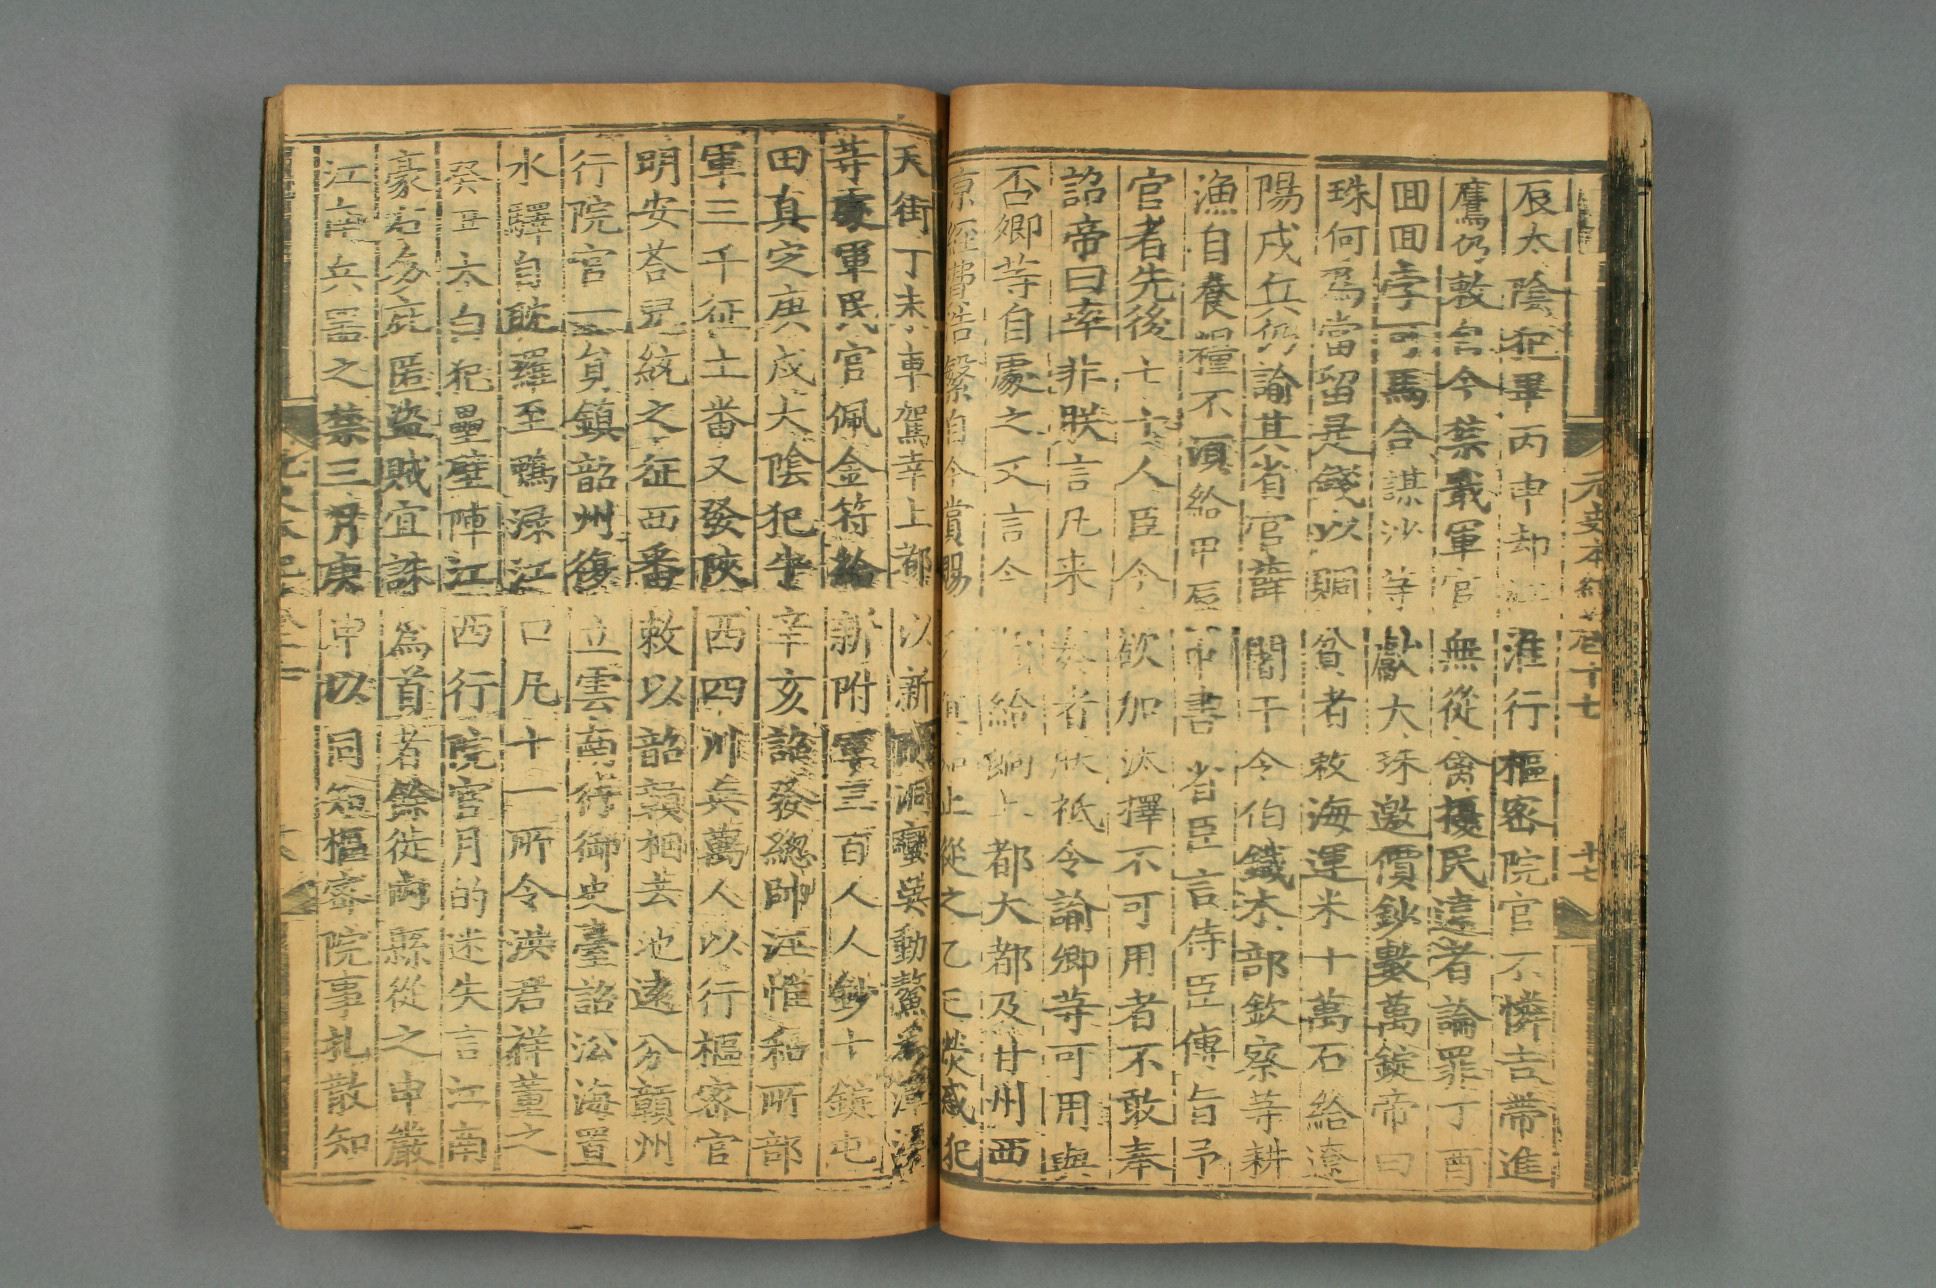 元史本紀卷十七 十七
辰太陰犯畢丙申却江淮行樞密院官不憐吉帶進
鷹仍敕自今禁戢軍官無從禽擾民違者論罪丁酉
回回孛可馬合謀沙等獻大珠邀價鈔數萬錠帝曰
珠何爲當留是錢以賙貧者敕海運米十萬石給遼
陽戍兵仍諭其省官薛闍干令伯鐵木部欽察等耕
漁自養糧不須給甲辰中書省臣言侍臣傳旨予
官者先後七十人臣今欲加汰擇不可用者不敢奉
詔帝曰率非朕言凡来奏者朕祇令諭卿等可用與
否卿等自處之又言今歲給餉上都大都及甘州西
京經費浩繁自今賞賜悉宜姑止從之乙巳熒惑犯
天街丁未車駕幸上都以新附洞蠻吳動鰲爲潭溪
等處軍民官佩金符給新附軍三百人人鈔十錠屯
田真定庚戌太陰犯牛辛亥詔發總帥汪惟和所部
軍三千征土番又發陜西四川兵萬人以行樞密官
明安荅兒統之征西番敕以韶贛相去地遠分贛州
行院官一員鎮韶州復立雲南行御史臺詔沿海置
水驛自耽羅至鴨淥江口凡十一所令洪君祥董之
癸丑太白犯壘壁陣江西行院官月的迷失言江南
豪右多庇匿盗賊宜誅爲首者餘徙内縣從之申嚴
江南兵噐之禁三月庚申以同知樞密院事扎散知